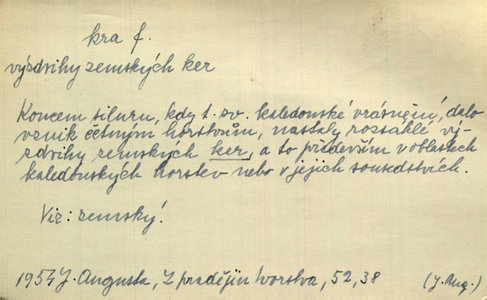 kra f.
výzdvihy zemských ker
Koncem siluru, kdy t. zv. kaledonské vrásnění, dalo
vznik četným horstvům, nastaly rozsáhlé vý-
zdvihy zemských ker, a to především v oblastech
kaledonských horstev nebo v jejich sousedstvích.
Viz: zemský.
1954 J. Augusta, Z pradějin tvorstva, 52, 38 (J. Aug.)